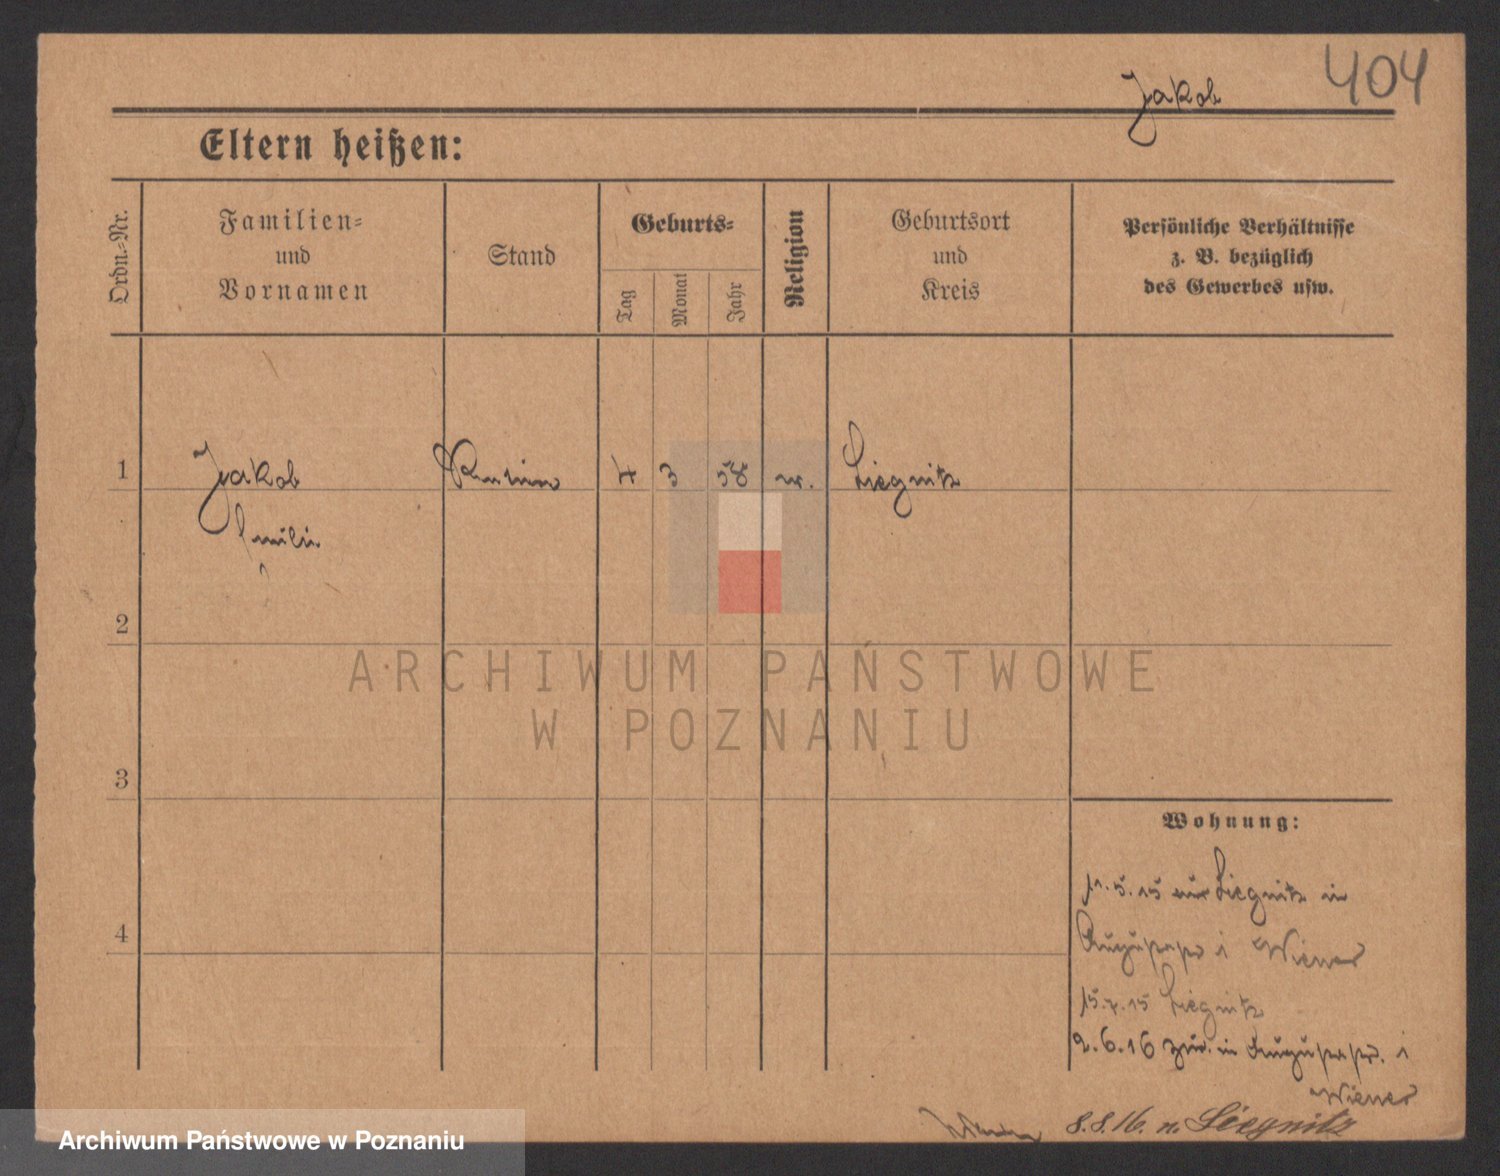 404
Jakob
Eltern heißen:
Ordn.-Nr.
Familien- und Vornamen
Stand
Geburts-
Tag
Monat
Jahr
Religion
Geburtsort und Kreis
Persönliche Verhältnisse
z. B. bezüglich
des Gewerbes usw.
1
Jakob
4 3 58
Liegnitz
Emilie
2
3
4
ARCHIWUM PAŃSTWOWE
W POZNANIU
Wohnung:
11.5.15 aus Liegnitz in
Augustastr 1 Wiener
15.7.15 Liegnitz
2.6.16 zur. in Augustastr. 1
Wiener
8.8.16. n. Liegnitz
Archiwum Państwowe w Poznaniu